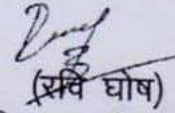 (रवि घोष)